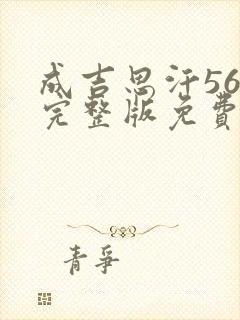 成吉思汗56
完整版免费
青争